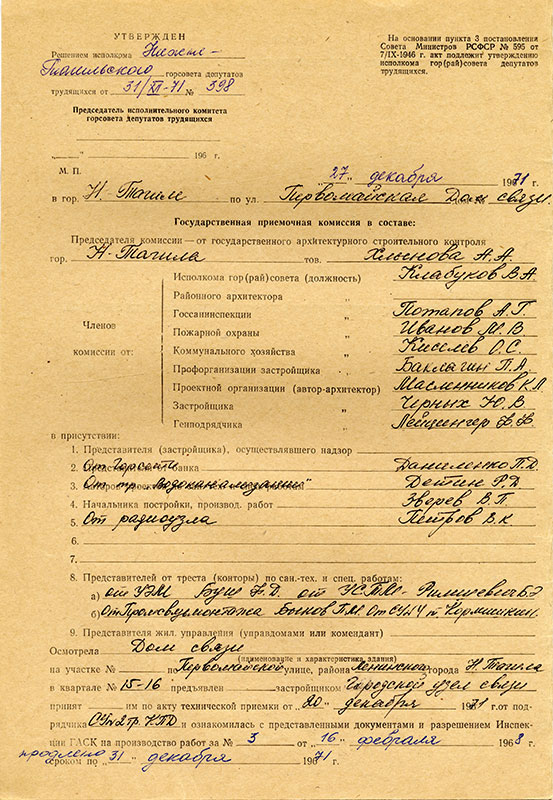 УТВЕРЖДЕН
Решением исполкома Нижне-
Тагильского горсовета депутатов
трудящихся от 31/XII-71 № 598
Председатель исполнительного комитета
горсовета депутатов трудящихся
„____“ 196 г.
М. П.
На основании пункта 3 постановления
Совета Министров РСФСР № 595 от
7/IX-1946 г. акт подлежит утверждению
исполкома гор(рай)совета депутатов
трудящихся.
„27“ декабря 1971 г.
в гор. Н-Тагиле по ул. Первомайская Дом связи
Государственная приемочная комиссия в составе:
Председателя комиссии — от государственного архитектурного строительного контроля
гор. Н-Тагила тов. Хлынова А.А.
Членов
комиссии от:
Исполкома гор(рай)совета (должность) Клабуков В.А.
Районного архитектора „
Госсанинспекции „ Потапов А.Г.
Пожарной охраны „ Иванов М.В
Коммунального хозяйства „ Киселев О.С.
Профорганизации застройщика „ Баклагин П.А.
Проектной организации (автор-архитектор) Масленников К.Л
Застройщика „ Черных Ю.В.
Генподрядчика „ Лейцингер Ф.Ф
в присутствии:
1. Представителя (застройщика), осуществлявшего надзор
2. От Горсети банка Даниленко П.Д.
3. От тр. „Водоканализации“ Детин Р.Д
4. Начальника постройки, производ. работ Зверев В.П.
5. От радиоузла Петров В.К
6.
7.
8. Представителей от треста (конторы) по сан.-тех. и спец. работам:
а) от УЭМ Буш Г.Д. от УСТМ-
б) От Промвентмонтажа Быков Г.М. От СУ-14 т. Кормишкин.
9. Представителя жил. управления (управдомами или комендант)
Осмотрела Дом связи
(наименование и характеристика здания)
на участке № ___ по Первомайской улице, района Ленинского города Н Тагила
в квартале № 15-16 предъявлен застройщиком Городской узел связи
принят им по акту технической приемки от „20“ декабря 1971 г. от под-
рядчика СУ№2 тр. КТД и ознакомилась с представленными документами и разрешением Инспек-
ции ГАСК на производство работ за № 3 от „16“ февраля 1968 г.
продлено сроком по „31“ декабря 1971 г.